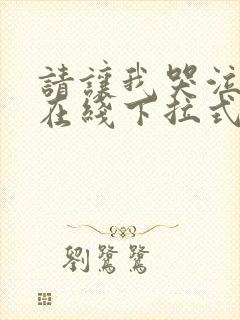 請讓我哭泣
在綫下拉式
劉鷺鷺